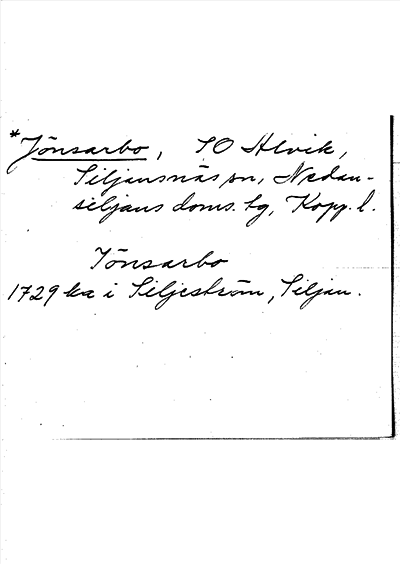 *Jönsarbo, SO Alvik,
Siljansnäs sn, Nedan-
siljans doms. tg, Kopp. l.
Jönsarbo
1729 ka i Siljeström, Siljan.